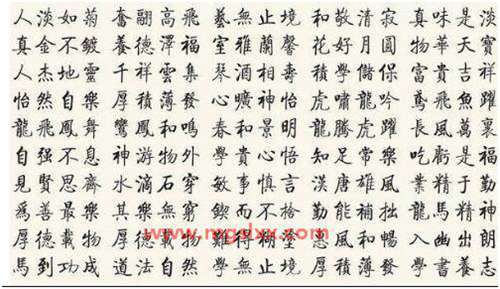 人淡如菊 奮翮高飛 藝無止境 和敬清寂 真味是淡
真金不鍍 養德澤福 室雅蘭馨 花好月圓 物華天寶
人杰地靈 千祥雲集 琴酒相壽 學儲 富貴吉祥
怡然自樂 厚積薄發 心曠神怡 虎嘯龍吟 鳶飛魚躍
龍飛鳳舞 鸞鳳和鳴 春和景明 龍騰虎躍 長風萬裏
自强不息 神游物外 學貴心悟 知足常樂 吃虧是福
見賢思齊 水滴石穿 敏事慎言 漢唐雄風 業精于勤
爲善最樂 其樂無窮 鍥而不捨 勤能補拙 龍馬精神
厚德載物 厚德載物 難得糊塗 惠風和暢 入幽出
馬到功成 道法自然 學無止境 厚積薄發